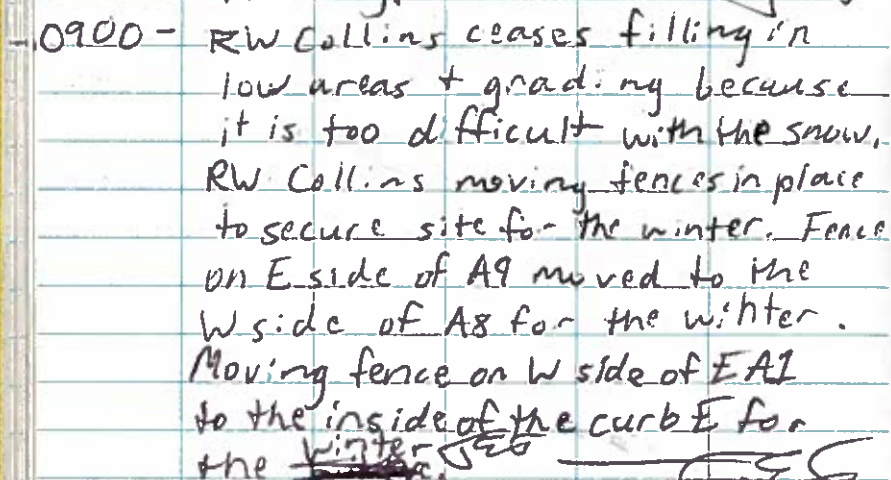 0900 - RW Collins ceases filling in
low areas + grading because
it is too difficult with the snow.
RW Collins moving fences in place
to secure site for the winter. Fence
on E side of A9 moved to the
W side of A8 for the winter.
Moving fence on W side of EA1
to the inside of the curb E for
the winter